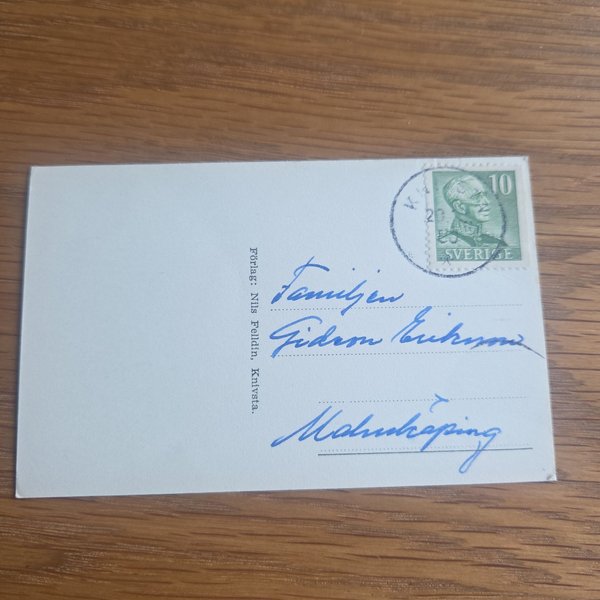 10
SVERIGE
Förlag: Nils Felldin, Knivsta.
Familjen
Gideon Eriksson
Malmköping